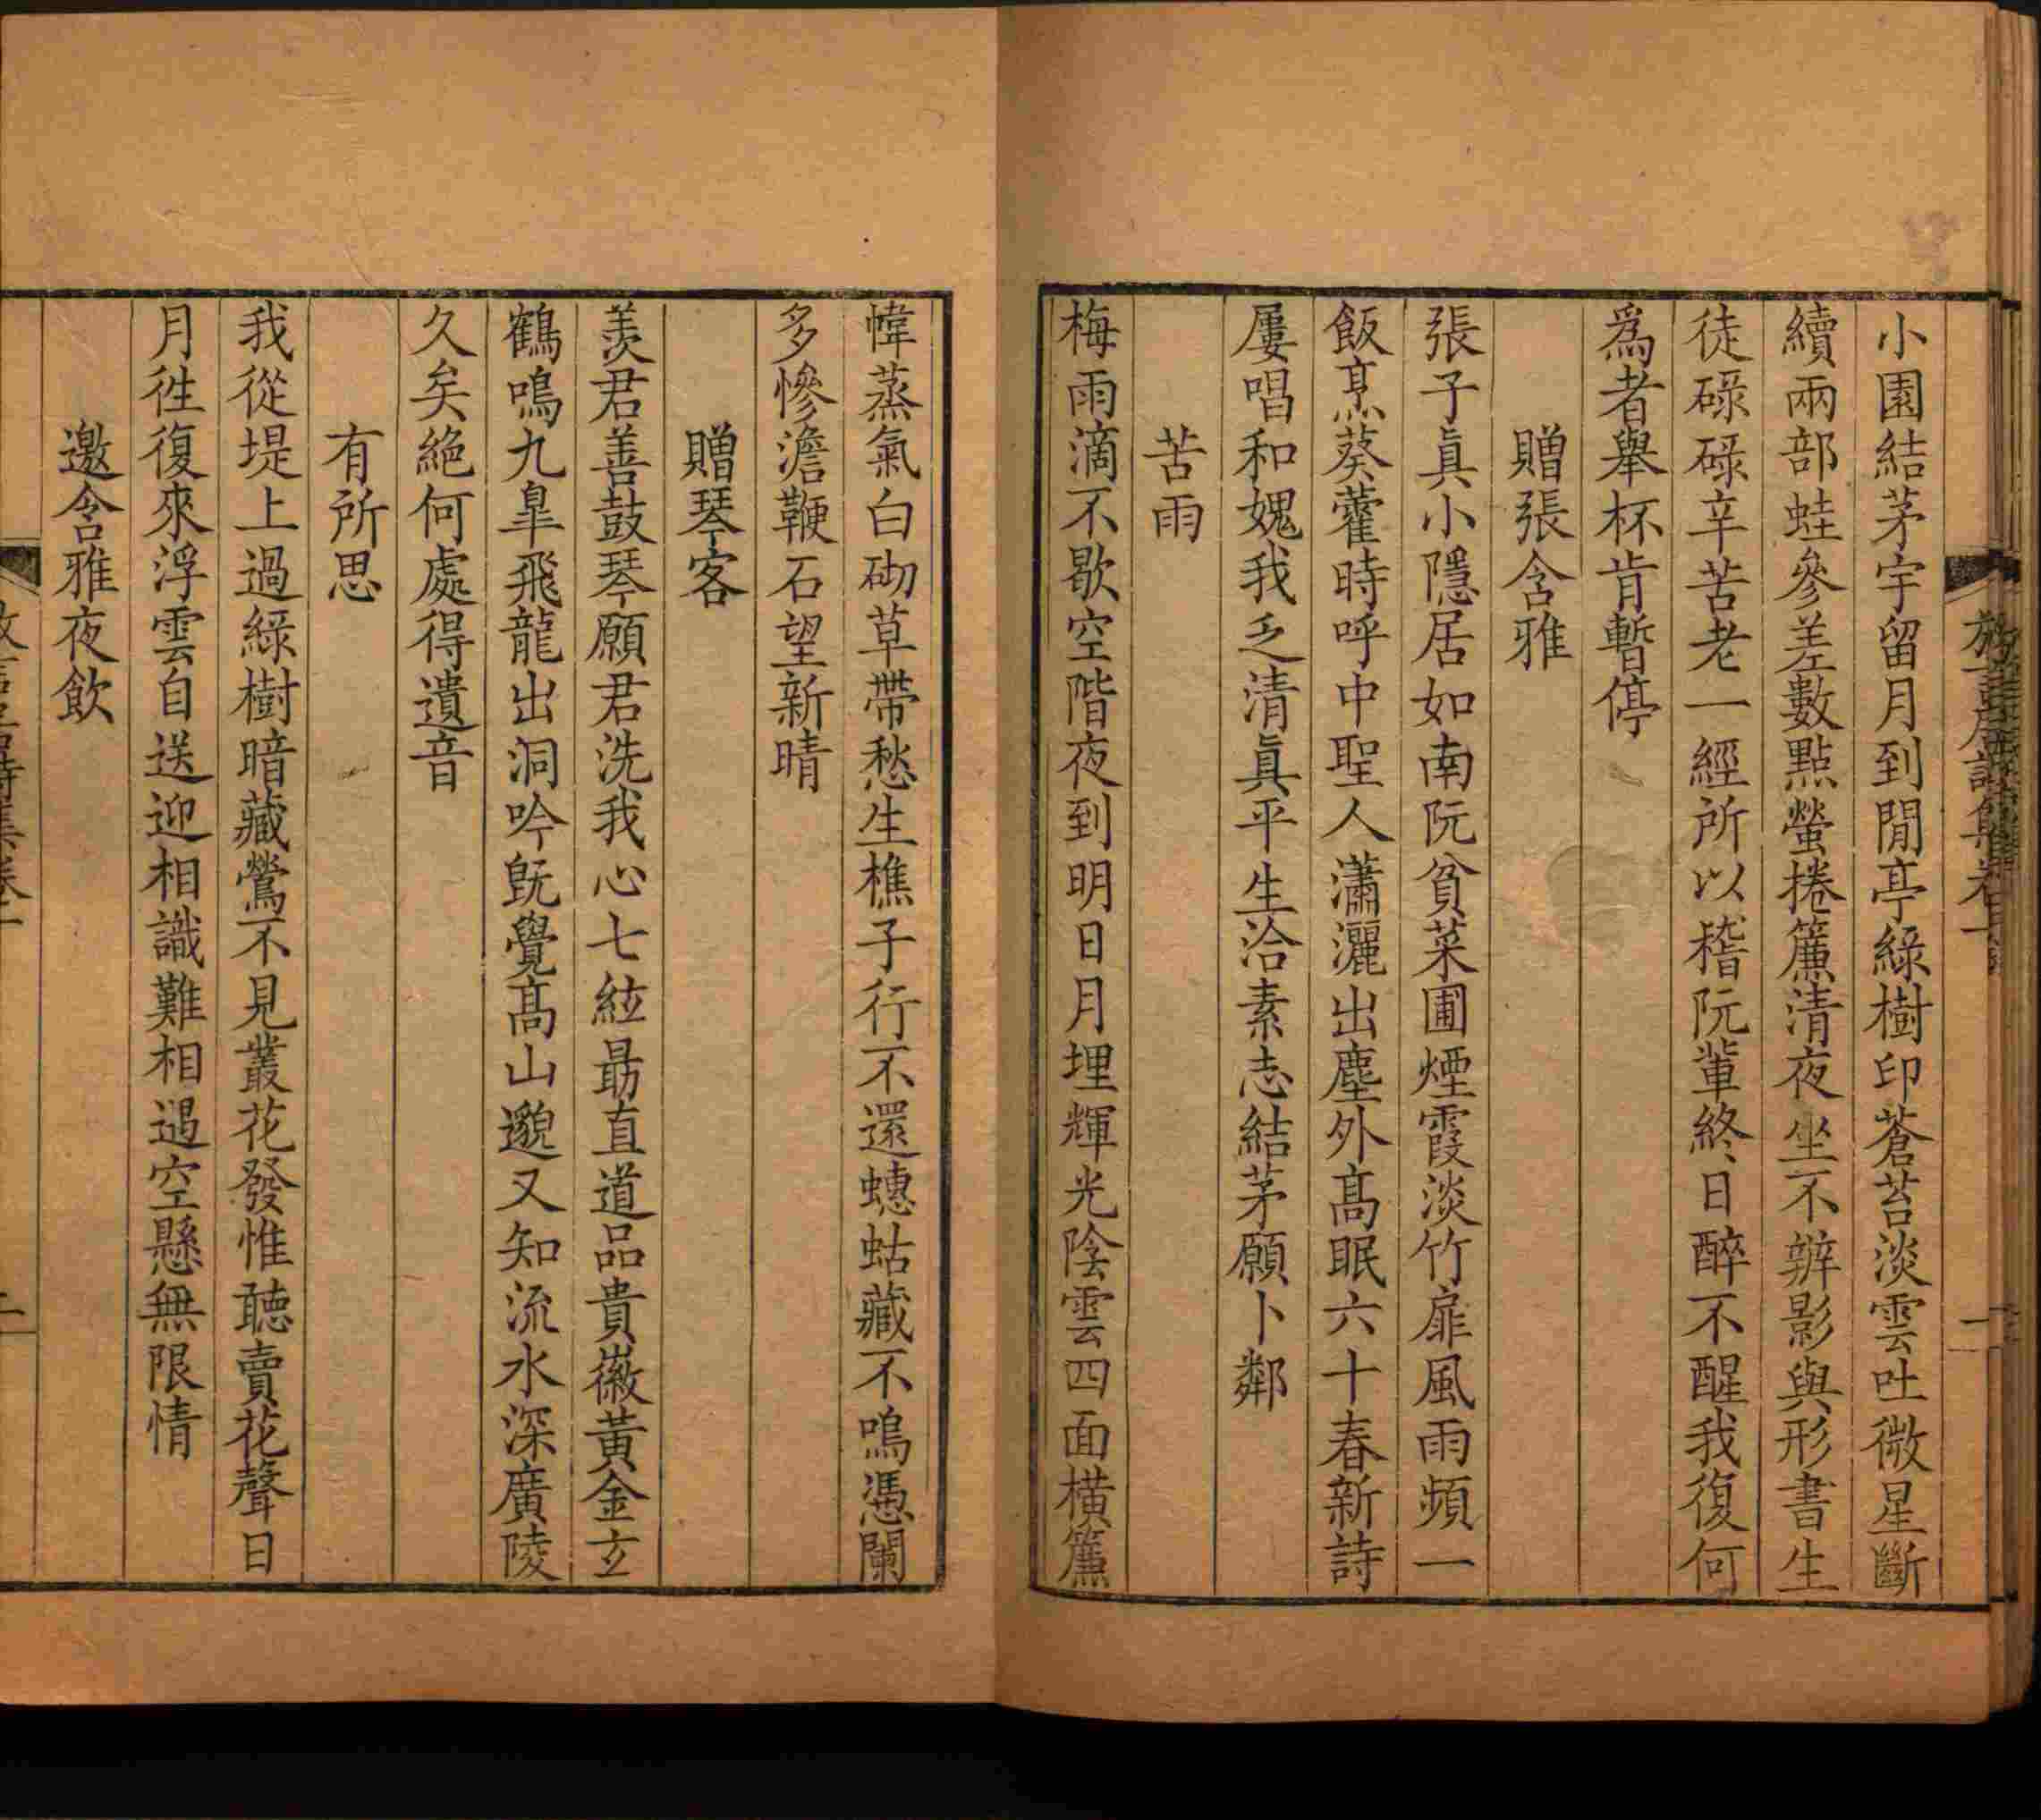 小園結茅宇留月到閒亭綠樹印蒼苔淡雲吐微星斷
續兩部蛙參差數點螢捲簾清夜坐不辨影與形書生
徒碌碌辛苦老一經所以嵇阮輩終日醉不醒我復何
爲者舉杯肯暫停
贈張含雅
張子真小隱居如南阮貧菜圃煙霞淡竹扉風雨頻一
飯烹葵藿時呼中聖人瀟灑出塵外髙眠六十春新詩
屢唱和媿我乏清真平生洽素志結茅願卜鄰
苦雨
梅雨滴不歇空階夜到明日月埋輝光陰雲四面橫簾
幃蒸氣白砌草帶愁生樵子行不還蟪蛄藏不鳴憑闌
多慘澹鞭石望新晴
贈琴客
羨君善鼓琴願君洗我心七絃最直道品貴徽黃金玄
鶴鳴九臯飛龍出洞吟旣覺髙山邈又知流水深廣陵
久矣絕何處得遺音
有所思
我從堤上過綠樹暗藏鶯不見叢花發惟聽賣花聲日
月徃復來浮雲自送迎相識難相遇空懸無限情
邀含雅夜飲
二